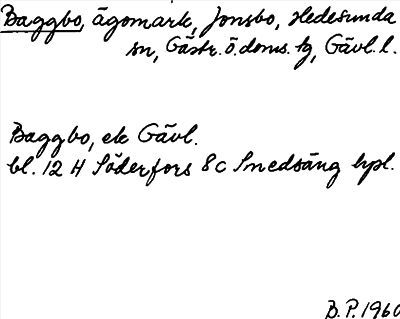 Baggbo, ägomark, Jonsbo, Hedesunda
sn, Gästr. ö. doms. tg, Gävl. l.
Baggbo, ek Gävl.
bl. 12 H Söderfors 8c Smedsäng hpl.
B.P. 1960